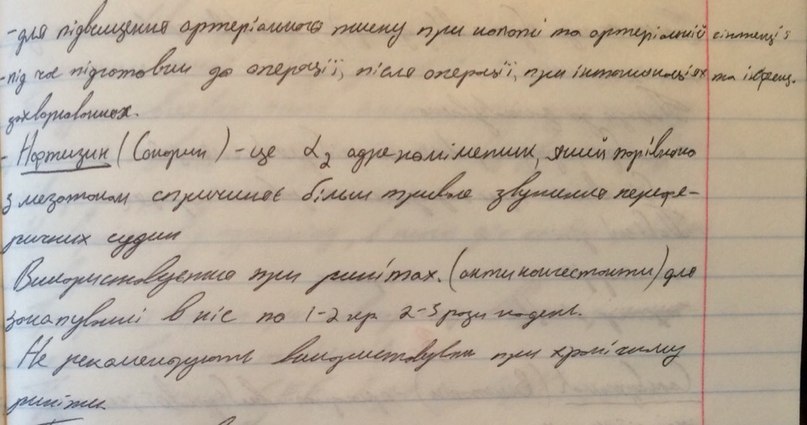 -для підвищення артеріального тиску при колапсі та артеріальній гіпотензії
-під час підготовки до операції, після операції, при інтоксикаціях та інфекц.
захворюваннях.
- Нафтизин (Санорин) - це α₂ адреноміметик, який порівняно
з мезатоном спричиняє більш тривале звуження перефе-
ричних судин
Використовується при ринітах. (антиконгестанти) для
закапуванні в ніс по 1-2 кр 2-3 рази на день.
Не рекомендують використовувати при хронічному
риніті.